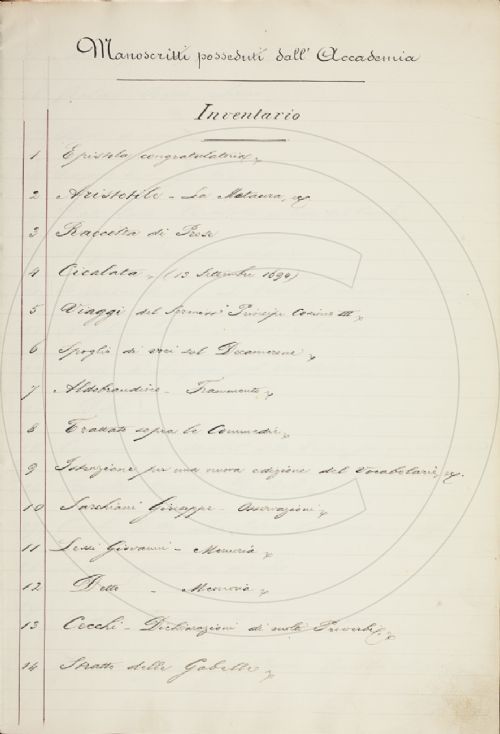 Manoscritti posseduti dall' Accademia
Inventario
1 Epistola congratulatoria
2 Aristotile - La Metaura,
3 Raccolta di Prose
4 Cicalata, (13 Settembre 1694)
5 Viaggi del Principe Cosimo III
6 Spoglio di voci sul Decamerone
7 Aldobrandino - Frammento
8 Trattato sopra le Commedie
9 Istruzione per una nuova edizione del Vocabolario,
10 Sarchiani Giuseppe - Osservazioni
11 Lessi Giovanni - Memoria
12 Detto - Memoria
13 Cecchi - Dichiarazioni di molti Proverbi,
14 Stratto delle Gabelle